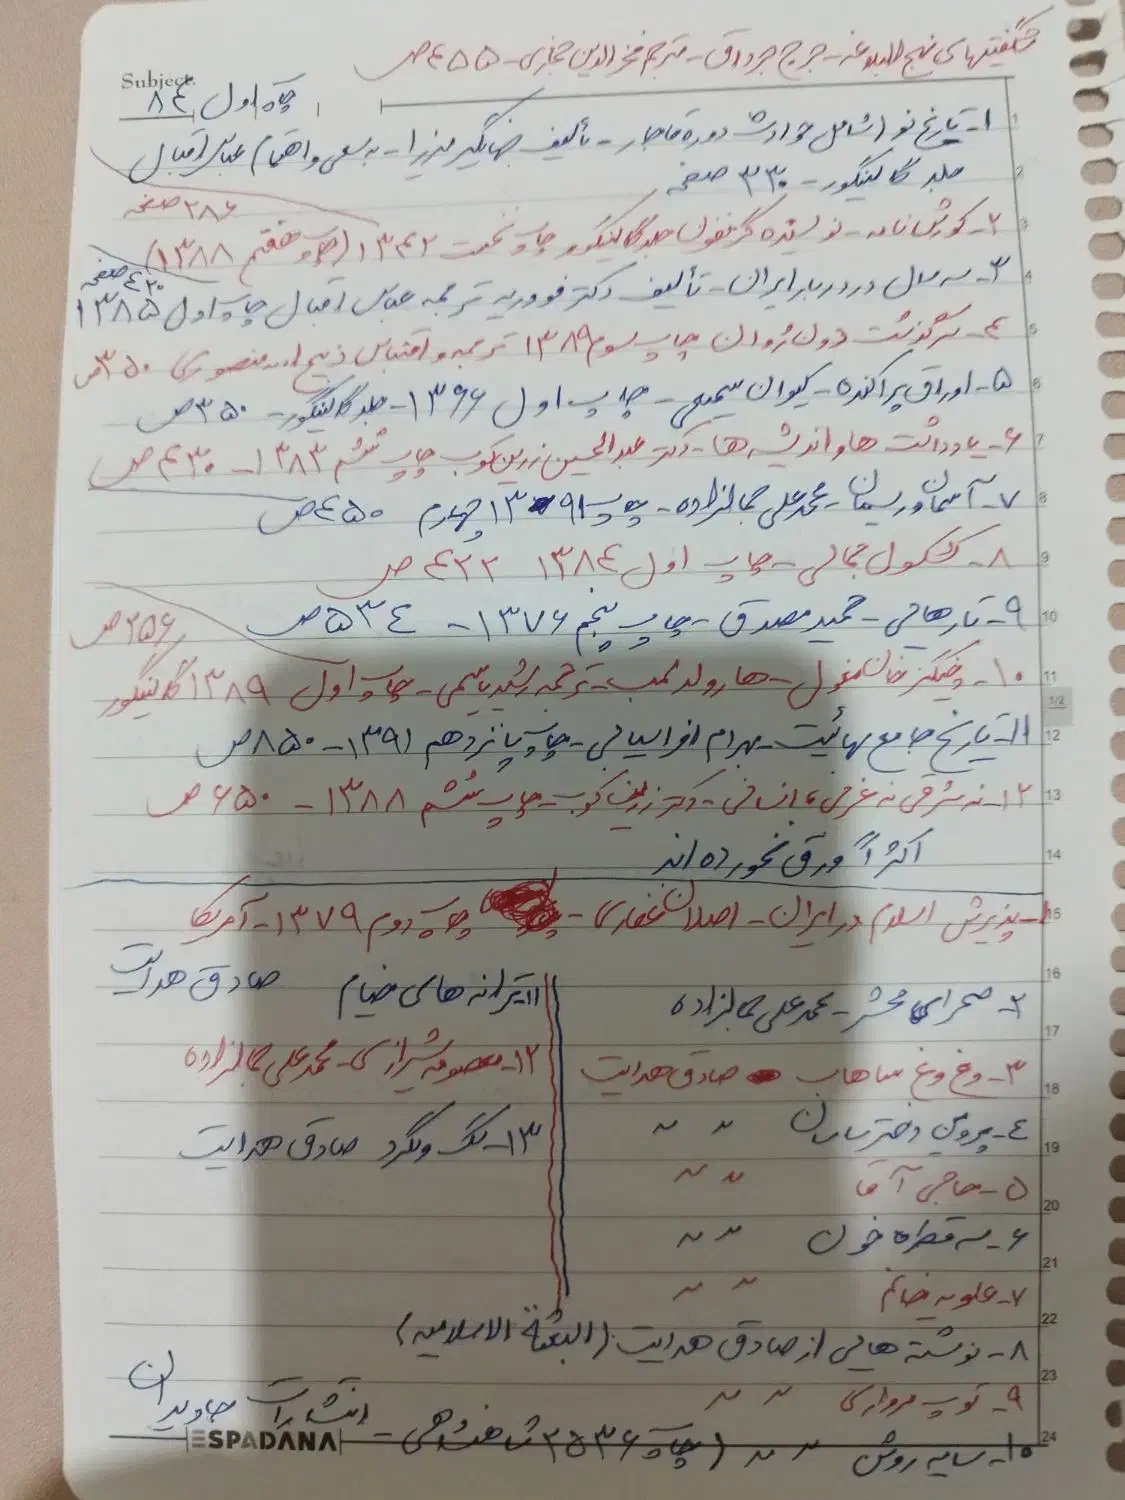 شگفتیهای نهج البلاغه - جرج جرداق - مترجم فخرالدین حجازی - ۴۵۵ ص
Subject:
چاپ اول ۸۴
۱- تاریخ نو (شامل حوادث دوره قاجار - تألیف جهانگیر میرزا - به سعی و اهتمام عباس اقبال
جلد گالینگور - ۳۳۰ صفحه
۲۸۶ صفحه
۲- کورش نامه - نویسنده گزنفون جلد گالینگور چاپ نخست ۱۳۴۲ (چاپ هفتم ۱۳۸۸)
۴۲۰ صفحه
۳- سه سال در دربار ایران - تألیف دکتر فووریه ترجمه عباس اقبال چاپ اول ۱۳۸۵
۴- سرگذشت دون ژوان چاپ سوم ۱۳۸۹ ترجمه و اقتباس ذبیح اله منصوری ۳۵۰ ص
۵- اوراق پراکنده - کیوان سمیعی - چاپ اول ۱۳۶۶ - جلد گالینگور - ۳۵۰ ص
۶- یادداشت ها و اندیشه ها - دکتر عبدالحسین زرین کوب چاپ ششم ۱۳۸۳ - ۴۳۰ ص
۷- آسمان و ریسمان - محمدعلی جمالزاده - چاپ چهارم ۴۵۰ ص
۸- کشکول جمالی - چاپ اول ۱۳۸۴ ۴۲۲ ص
۹- تا رهایی - حمید مصدق - چاپ پنجم ۱۳۷۶ - ۵۳۴ ص
۲۵۶ ص
۱۰- چنگیز خان مغول - هارولد لمب - ترجمه رشید یاسمی - چاپ اول ۱۳۸۹ گالینگور
۱۱- تاریخ جامع بهائیت - بهرام افراسیابی - چاپ پانزدهم ۱۳۹۱ - ۸۵۰ ص
۱۲- نه شرقی نه غربی، انسانی - دکتر زرین کوب - چاپ ششم ۱۳۸۸ - ۶۵۰ ص
اکثراً ورق نخورده اند
۱- پذیرش اسلام در ایران - اصلان غفاری - چاپ دوم ۱۳۷۹ - آمریکا
۲- صحرای محشر - محمدعلی جمالزاده
۳- وغ وغ ساهاب صادق هدایت
۴- پروین دختر ساسان ” ”
۵- حاجی آقا ” ”
۶- سه قطره خون ” ”
۷- علویه خانم ” ”
۸- نوشته هایی از صادق هدایت (البعثة الاسلامیه)
۹- توپ مرواری ” ”
۱۰- سایه روشن ” ” (چاپ ۲۵۳۶ شاهنشاهی - انتشارات جاویدان
۱۱- ترانه های خیام صادق هدایت
۱۲- معصومه شیرازی - محمدعلی جمالزاده
۱۳- سگ ولگرد صادق هدایت
ESPADANA